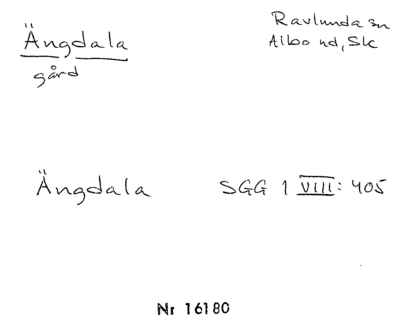 Ängdala
gård
Ravlunda sn
Albo hd, Sk
Ängdala SGG 1 VIII: 405
Nr 16180